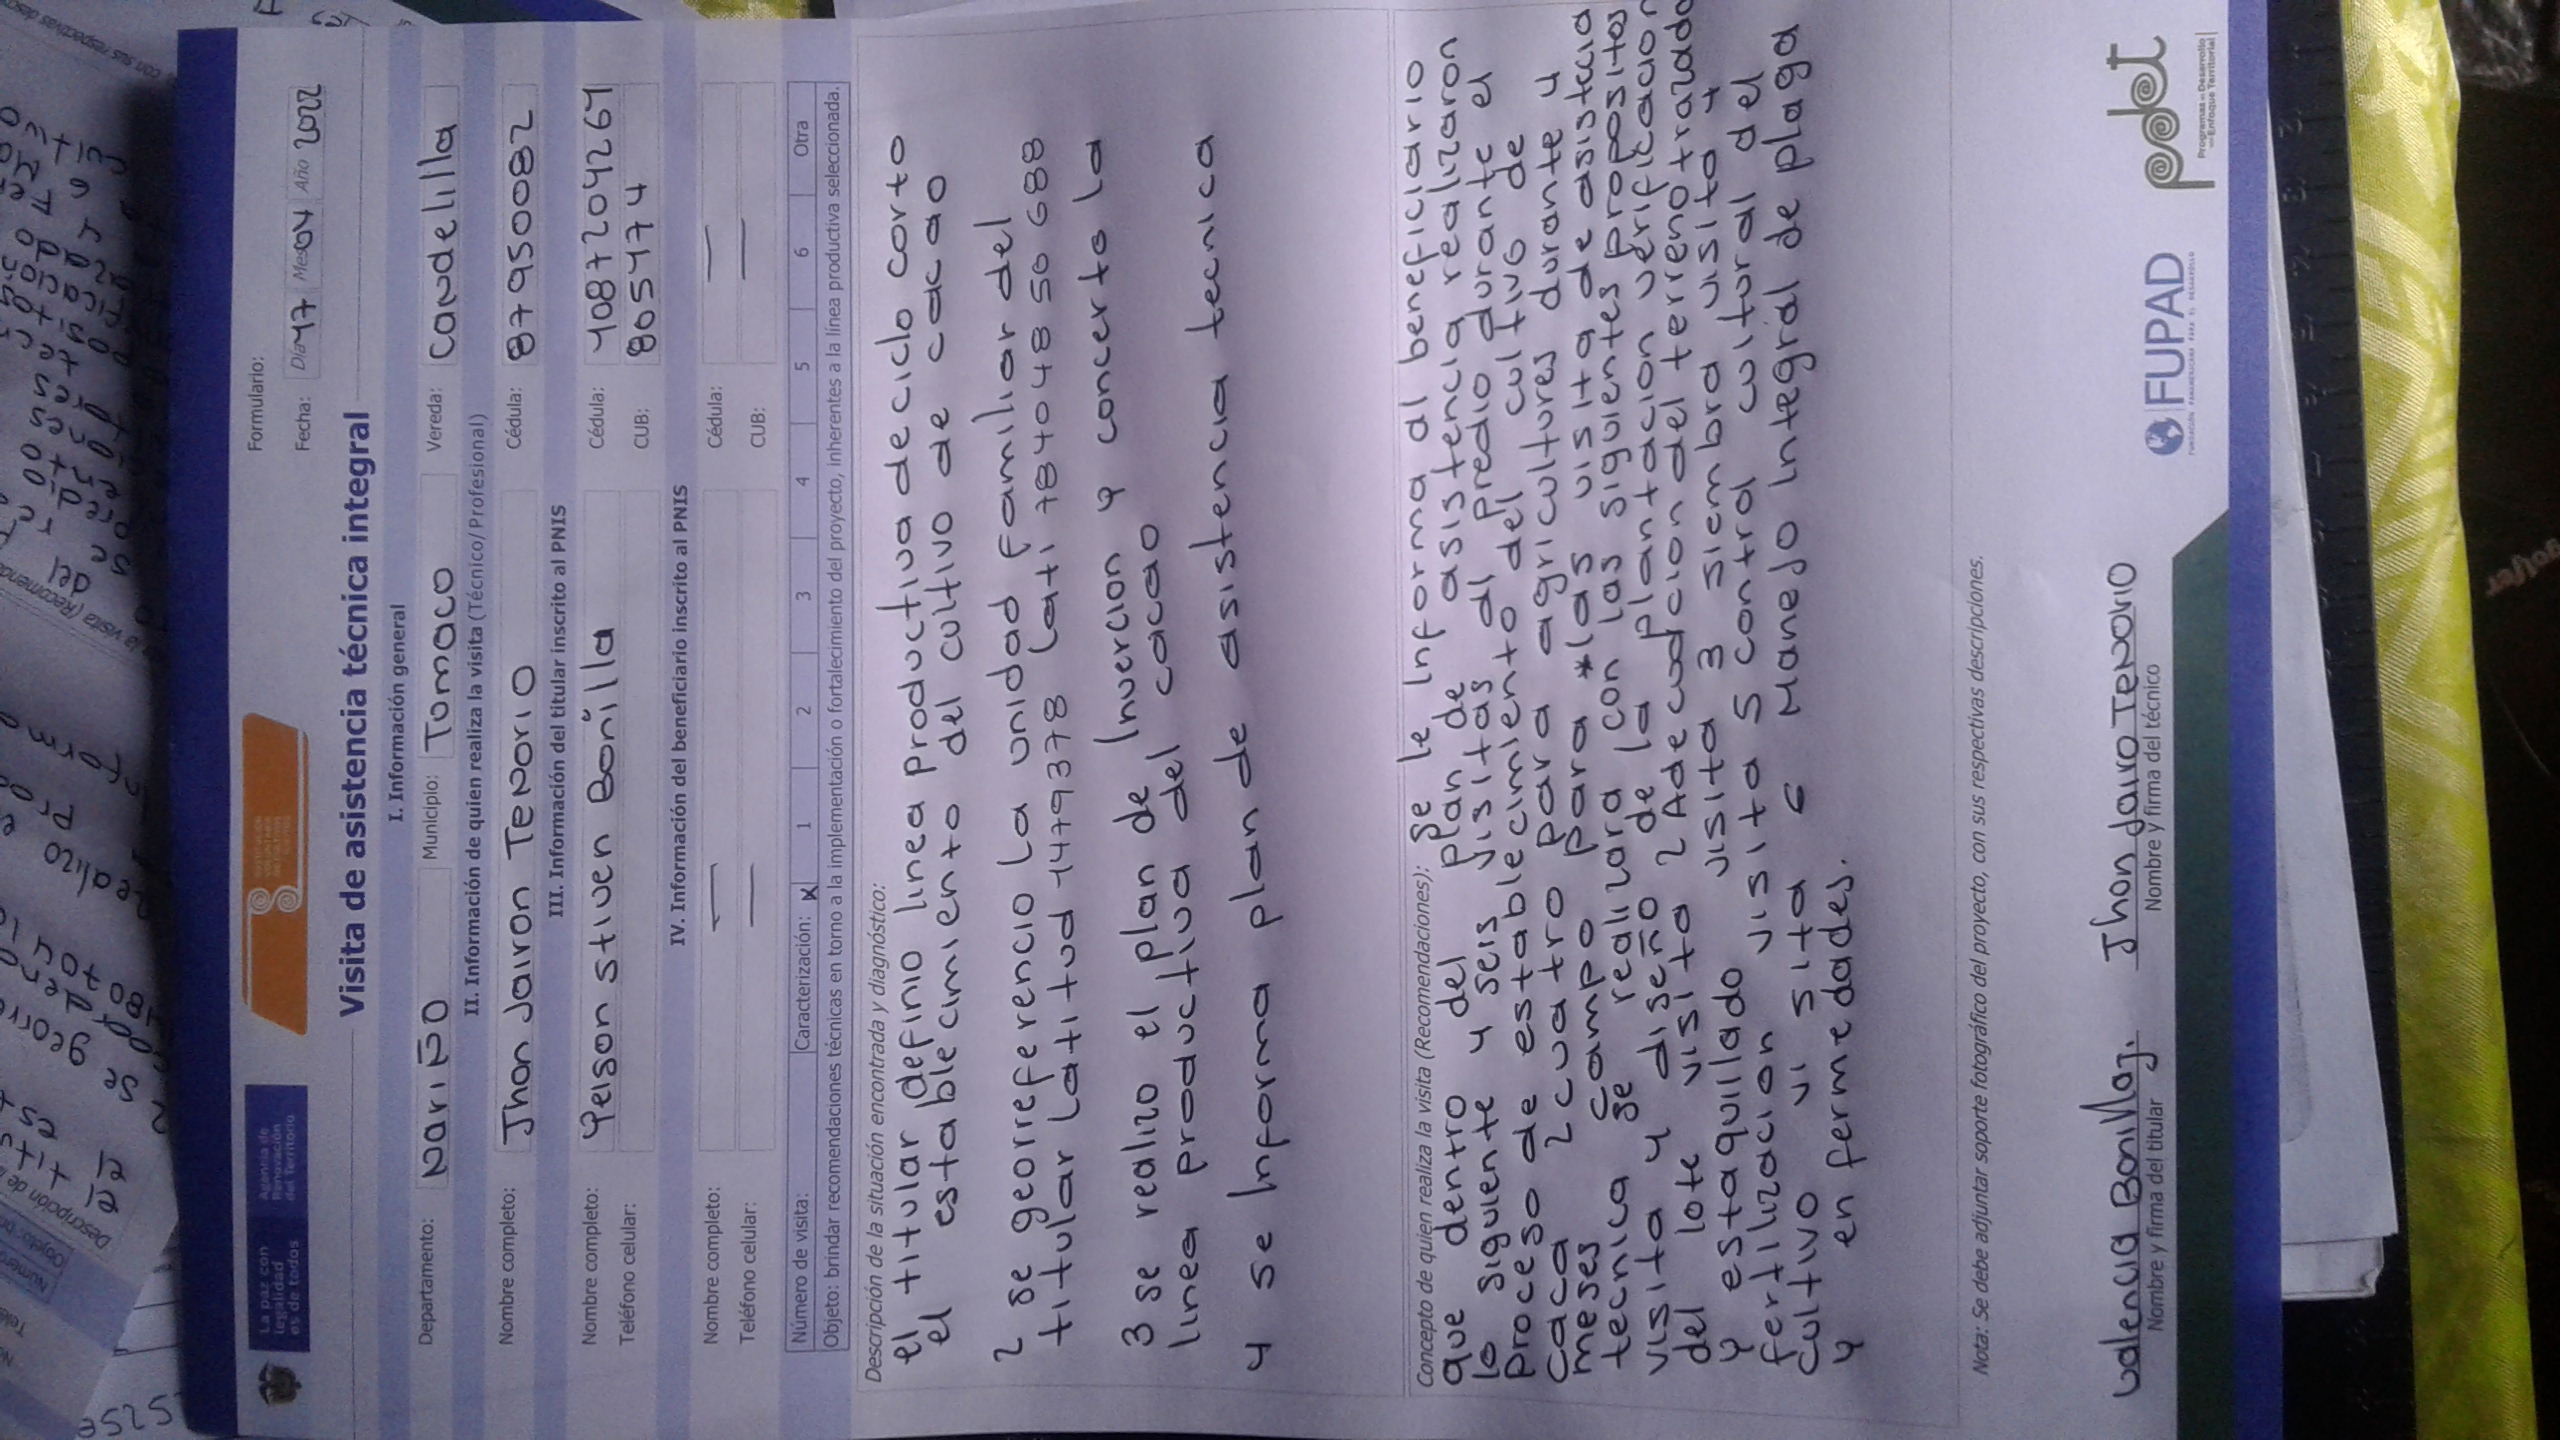 La paz con
legalidad
es de todos
Agencia de
Renovación
del Territorio
Formulario:
Fecha: Día 17 Mes 04 Año 2022
Visita de asistencia técnica integral
I. Información general
Departamento: Nariño Municipio: Tumaco Vereda: Candelilla
II. Información de quien realiza la visita (Técnico/Profesional)
Nombre completo: Jhon Jairon Tenorio Cédula: 87950082
III. Información del titular inscrito al PNIS
Nombre completo: Yeison stiven Bonilla Cédula: 1087204264
Teléfono celular: CUB: 8054174
IV. Información del beneficiario inscrito al PNIS
Nombre completo: — Cédula: —
Teléfono celular: — CUB: —
Número de visita: Caracterización: X 1 2 3 4 5 6 Otra
Objeto: brindar recomendaciones técnicas en torno a la implementación o fortalecimiento del proyecto, inherentes a la línea productiva seleccionada.
Descripción de la situación encontrada y diagnóstico:
el titular definio linea productiva de ciclo corto
el establecimiento del cultivo de cacao
2 se georreferencio la unidad familiar del
titular Latitud 1479378 Lati 784048 50 688
3 se realizo el plan de Invercion y concerto la
linea productiva del cacao
4 se Informa plan de asistencia tecnica
Concepto de quien realiza la visita (Recomendaciones): se le Informa al beneficiario
que dentro del plan de asistencia realizaron
lo siguiente y seis visitas al predio durante el
proceso de establecimiento del cultivo de
caca 2 cuatro para agricultures durante 4
meses campo para *las visita de asistecia
tecnica se realizara con las siguientes propositos
visita y diseño de la plantacion verificacion
del lote visita 2 Adecuacion del terreno trazado
y estaquillado visita 3 siembra visita 4
fertilizacion visita 5 control cultural del
cultivo vi sita 6 Manejo Integral de plaga
y en fermedades.
Nota: Se debe adjuntar soporte fotográfico del proyecto, con sus respectivas descripciones.
valencia Bonilla J.
Nombre y firma del titular
Jhon Jairo TENORIO
Nombre y firma del técnico
FUPAD
FUNDACIÓN PANAMERICANA PARA EL DESARROLLO
pdet
Programas de Desarrollo
con Enfoque Territorial